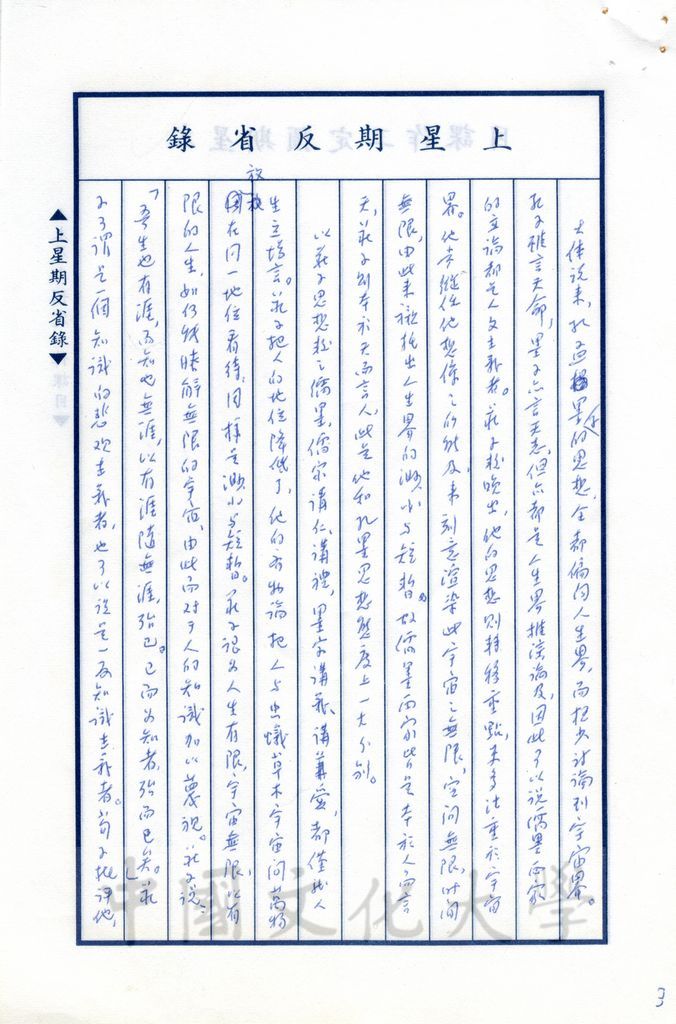 上星期反省錄
大体說來,孔子孟墨子的思想,全都偏向人生界,而極少討論到宇宙界。
孔子雖言天命,墨子亦言天志,但亦都是人生界推演論及,因此可以說儒墨兩家
的立論都是人文主義者。莊子較晚出,他的思想則轉移重點,來多注重於宇宙
界。他旁縱任他想像之所能及,來刻意渲染此宇宙之無限,空间無限,时间
無限,由此來襯托出人生界的渺小与短暫。故儒墨两家皆是本於人而言
天,莊子則本於天而言人,此是他和孔墨思想態度上一大分別。
以莊子思想較之儒墨,儒家講仁、講禮,墨家講義、講兼愛,都僅就人
生立場言。莊子把人的地位降低了,他的齊物論把人与虫蟻草木宇宙间萬物
放在同一地位看待,同样是渺小与短暫。莊子認為人生有限,宇宙無限,以有
限的人生,如何能瞭解無限的宇宙,由此而对于人的知識加以蔑視。莊子說:
「吾生也有涯,而知也無涯,以有涯隨無涯,殆已。已而為知者,殆而已矣。」莊
子可謂是一個知識的悲观主義者,也可以說是一反知識主義者。荀子批評他,
▲上星期反省錄▼
中國文化大學
3